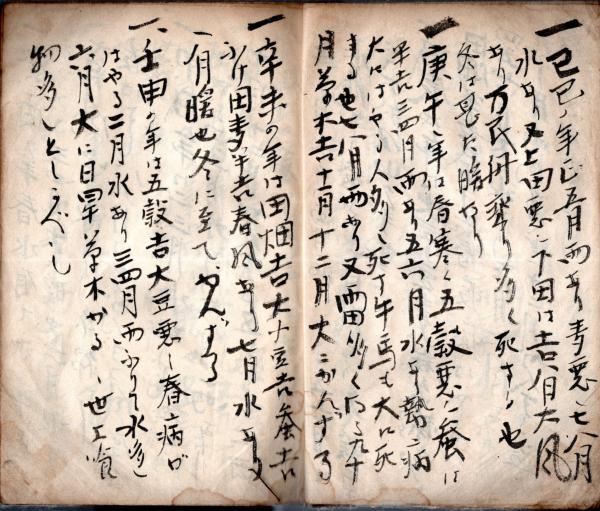 一己巳ノ年ハ正五月雨あり麦悪シ七八月
水あり又上田悪シ下田は吉八月大風
あり万民 多く死する也
冬は 暖也
一庚午ノ年は春寒く五穀悪シ蚕は
半吉三四月雨あり五六月水あり熱病
大にはやる人多く死す牛馬も大に死
する也七八月雨あり又雷多く 九十
月草木吉十一月十二月大にかんずる
一辛未の年は田畑吉大小豆吉蚕吉
田麦半吉春風ある七月水あり
八月暖也冬に至てかんずる
一壬申の年は五穀吉大豆悪し春病が
はやる二月水あり三四月雨ふりて水多し
六月大に日旱草木かるゝ世上
物多しとしるべし